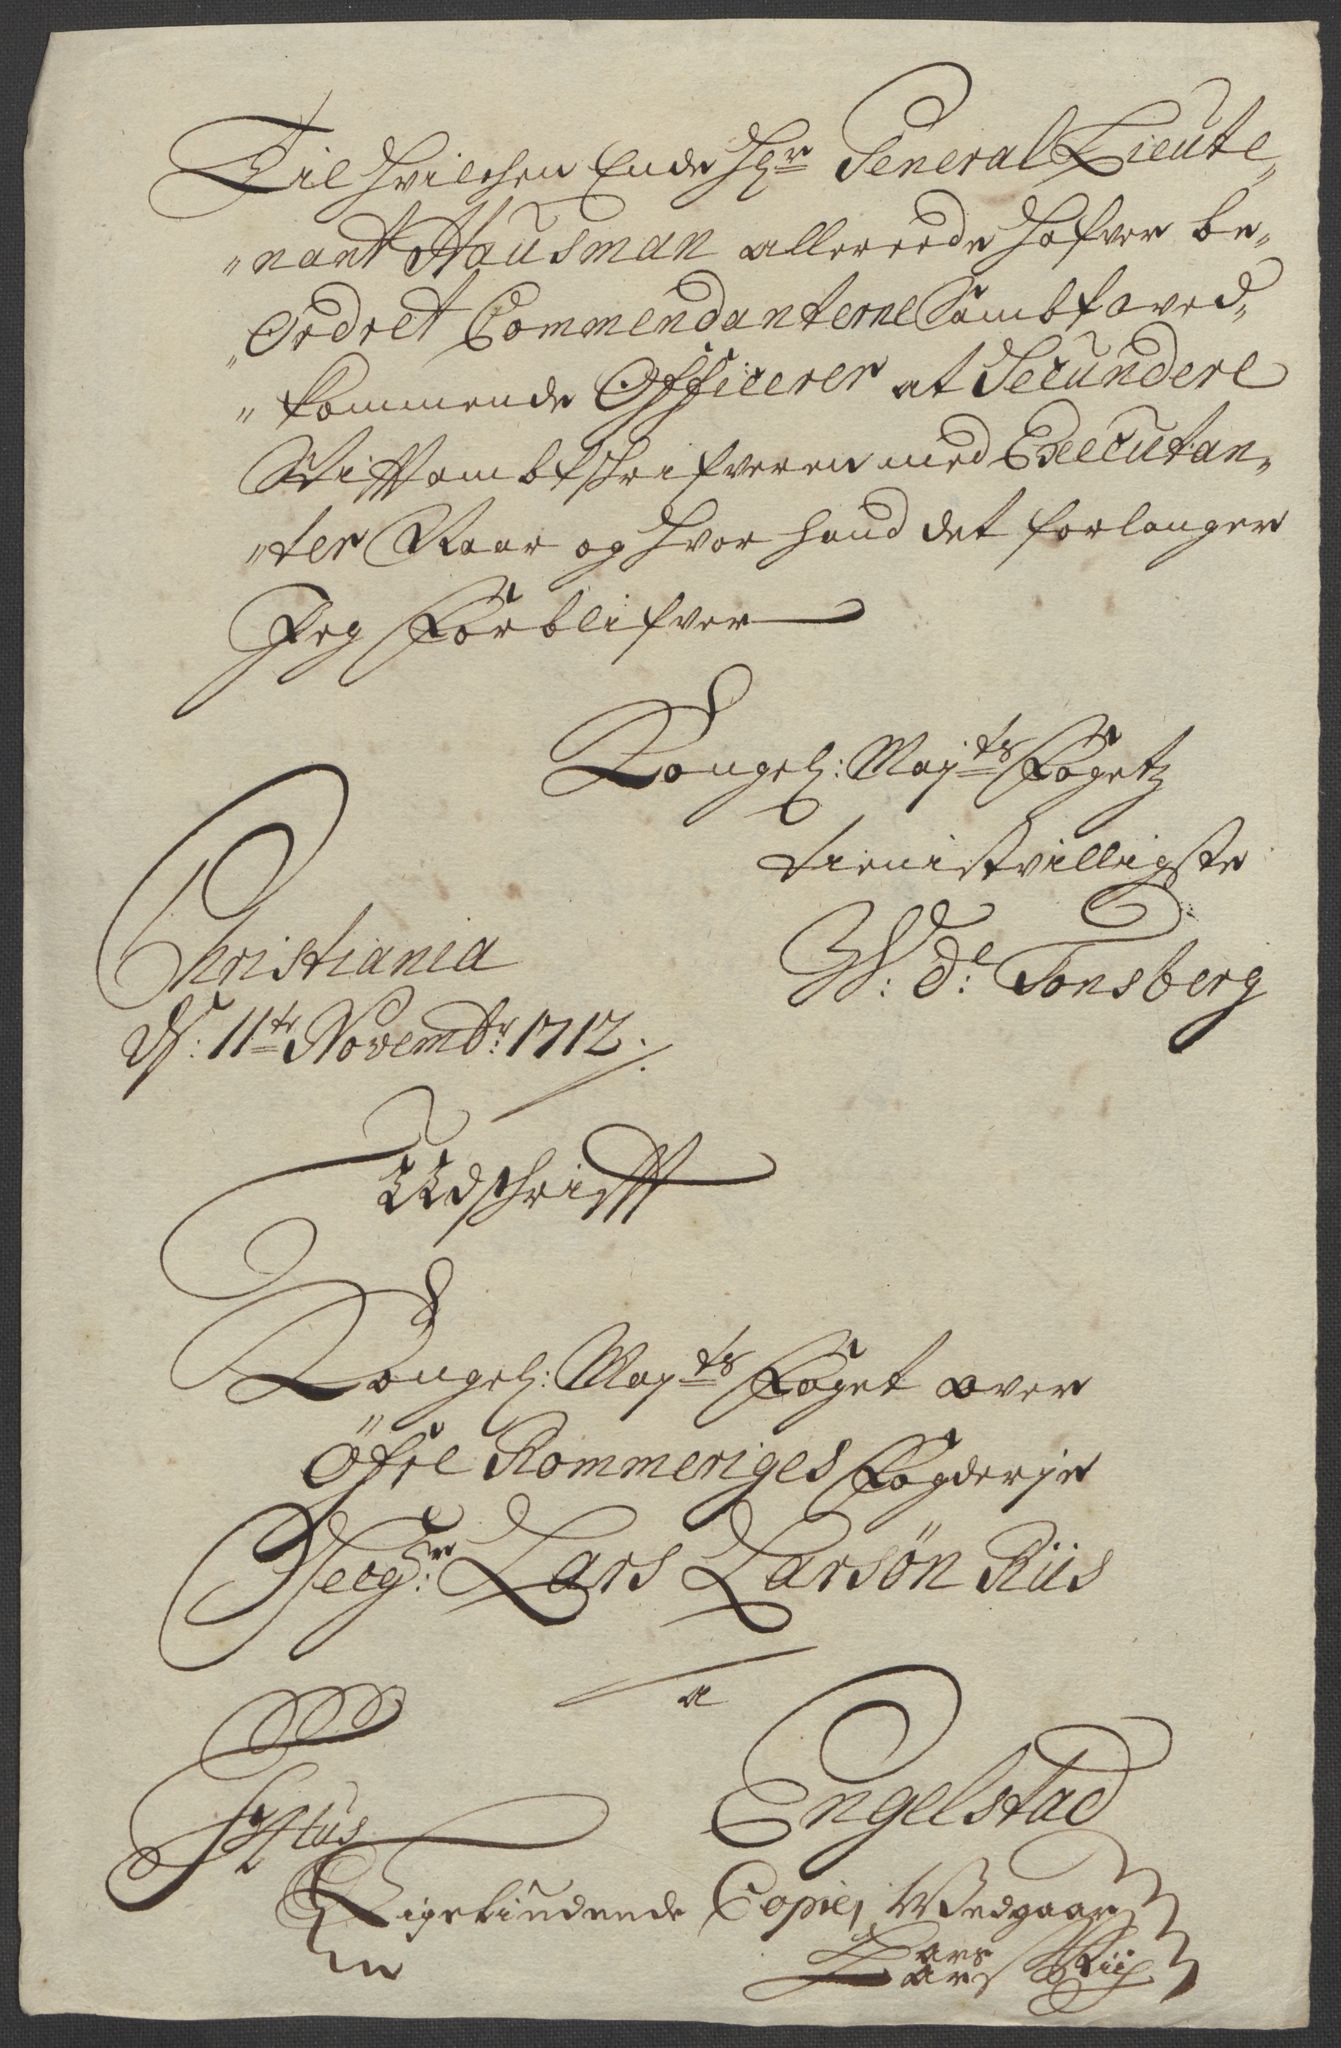 Til hvilchen Ende Hr General Lieute„
„nant Hausman allereede hafver be„
„Ordret Commendanterne Sambt aved„
„kommende Officerer at Secundere
Vitt ambtskrifveren med Executan„
„ter Naar og hvor hand det forlanger
Jeg Forblifver
Kongel: Majts Fogetz
tienistvilligste
W: d: Tonsberg
Christiania
d: 11te Novembr: 1712.
Udschrifft
Kongel: Majts Foget over
Öfre Rommeriges Fogderje
Sr Lars Larsøn Riis
a
Engelstad
Rigtig liudende Copie, Vedgaar
Lars Riis